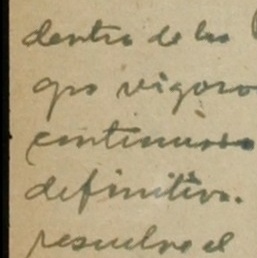 dentro de las
gro vigoro
continuas
definitiva.
resuelve el